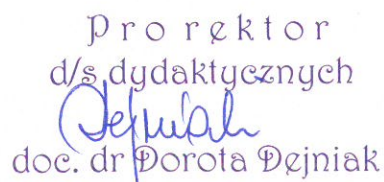 Prorektor
d/s dydaktycznych
Dejniak
doc. dr Dorota Dejniak